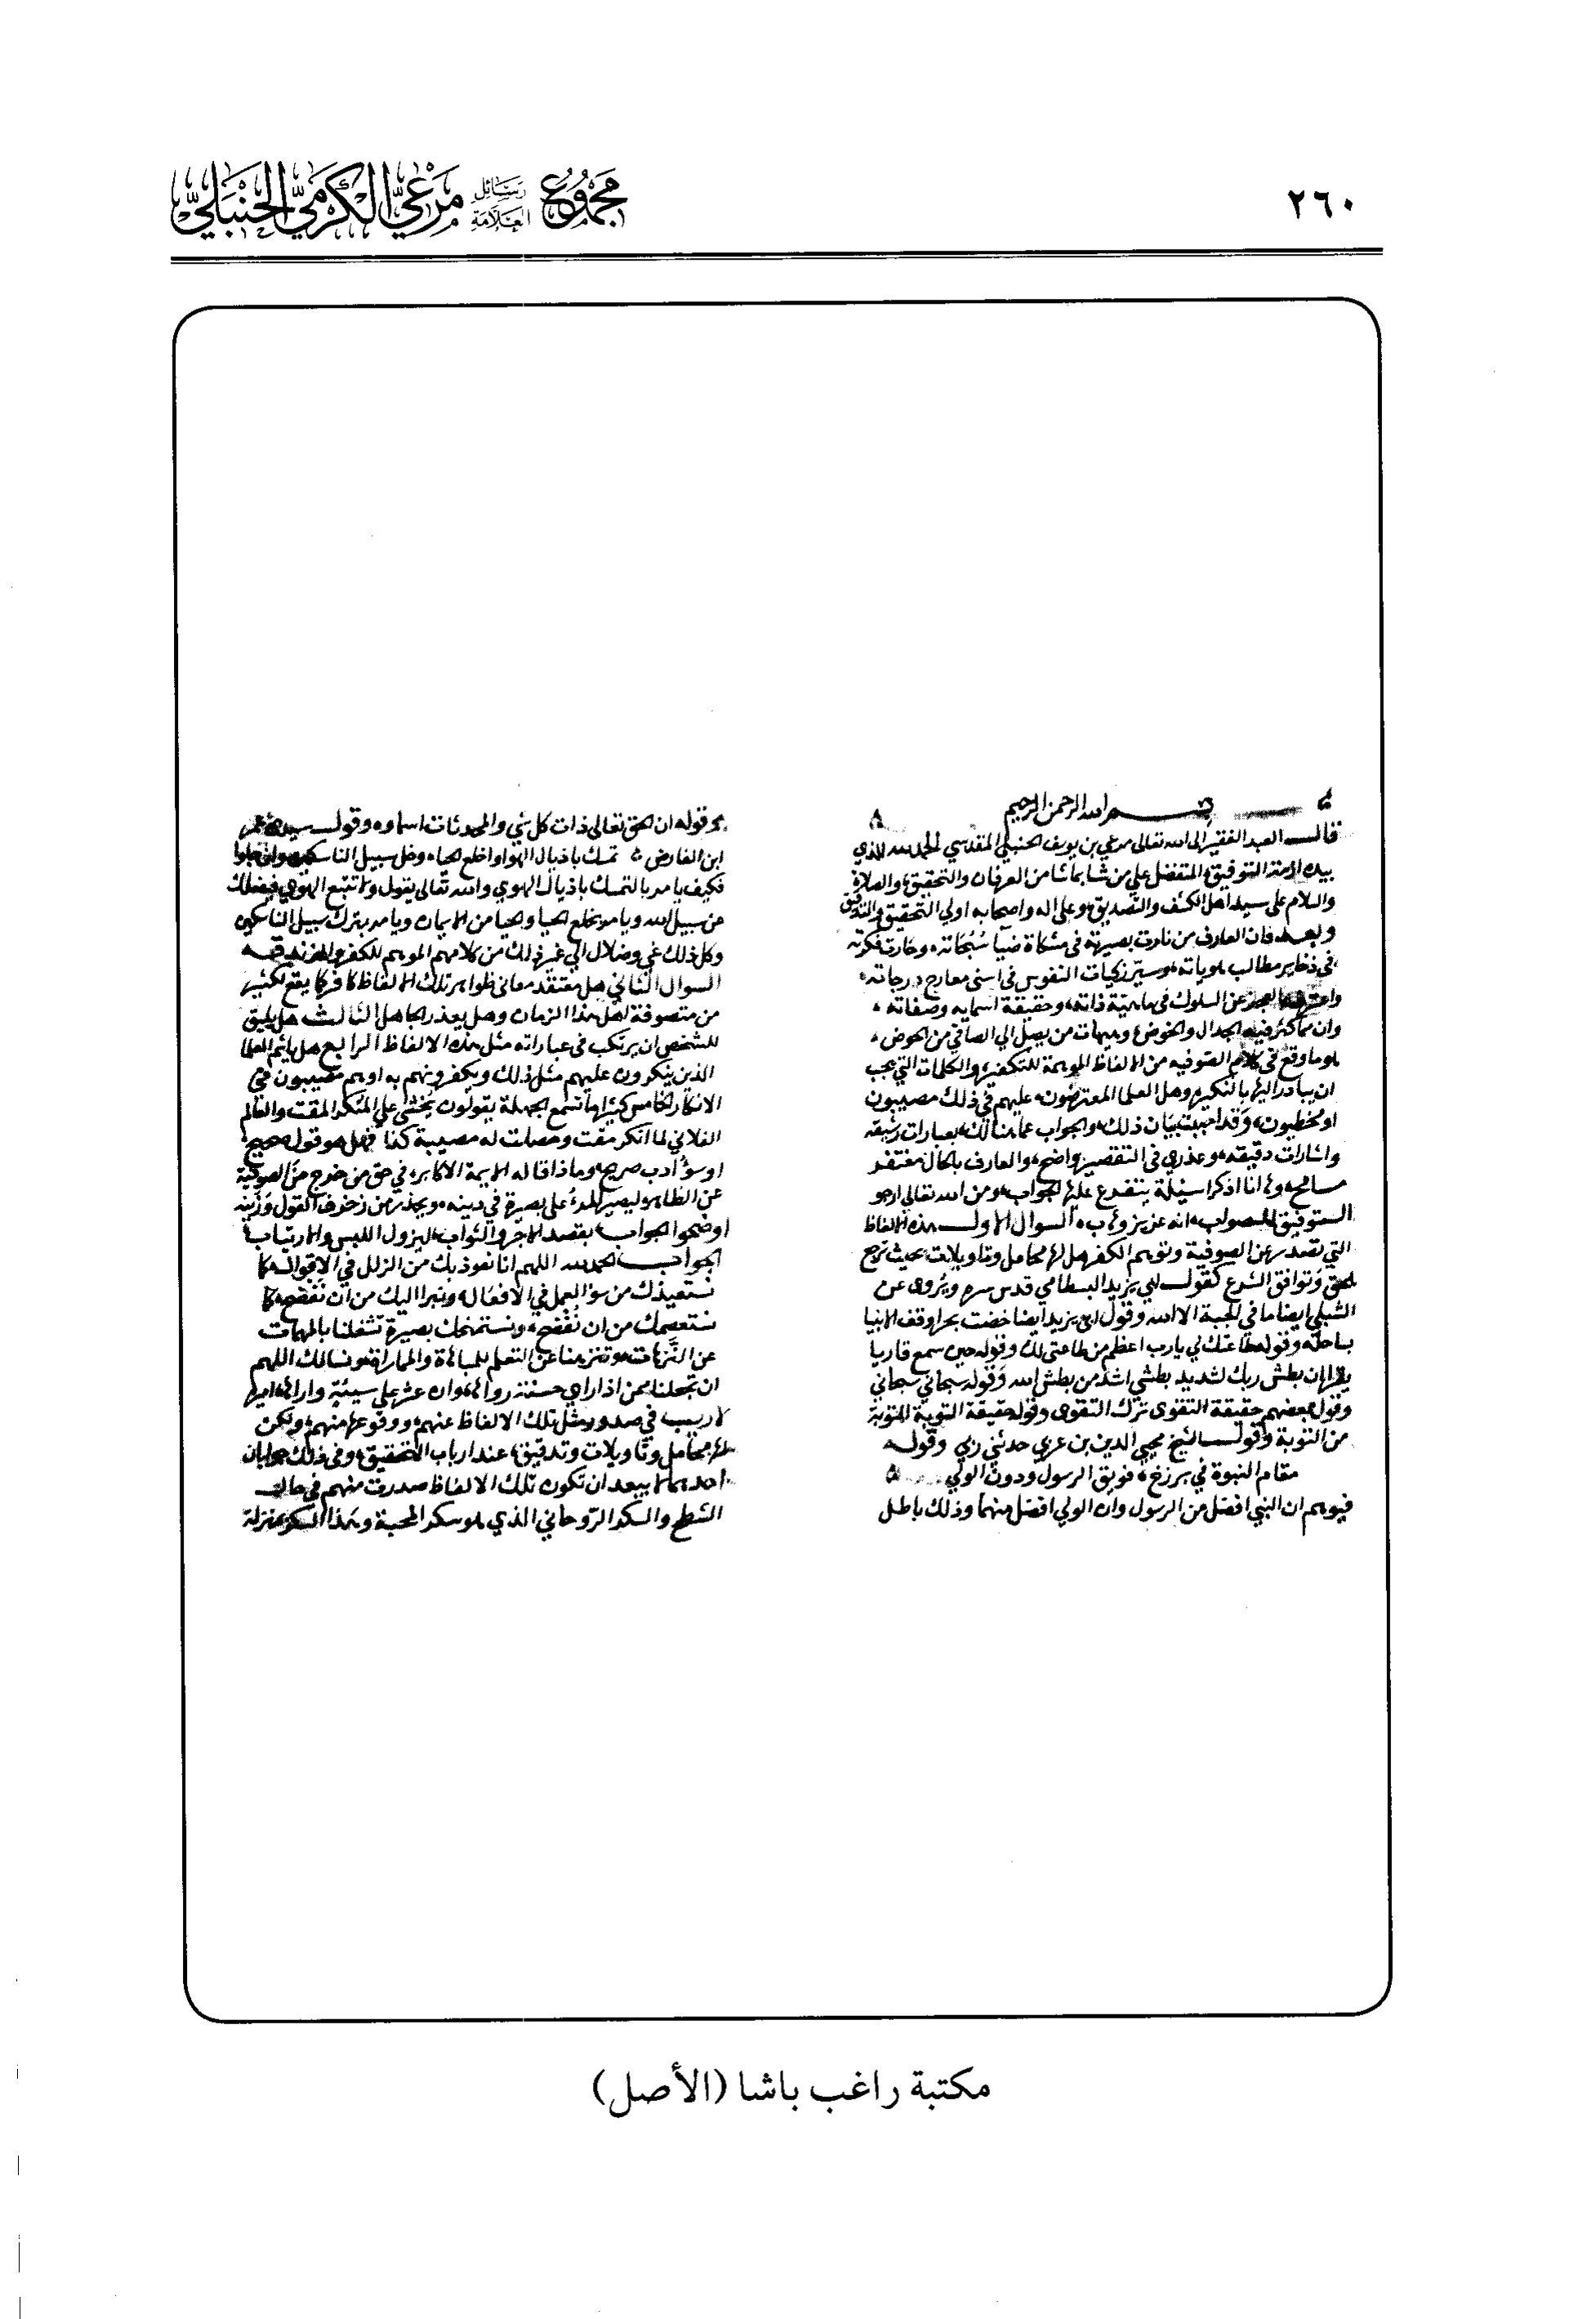 ٢٦٠
مجموع رسائل العلامة مرعي الكرمي الحنبلي
بسم الله الرحمن الرحيم
قال العبد الفقير الى الله تعالى مرعي بن يوسف الحنبلي المقدسي الحمد لله الذي
بيده ازمة التوفيق المتفضل على من شا بما شا من العرفان والتحقيق والصلاة
والسلام على سيد اهل الكشف والتصديق وعلى اله واصحابه اولي التحقيق والتدقيق
وبعد فان العارف من نارت بصيرته في مشكاة ضيا سبحاته وحارت فكرته
في ذخاير مطالب هوياته وسير زكيات النفوس في اسنى معارج درجاته
واعترف بالعجز عن السلوك في ماهية ذاته وحقيقة اسمايه وصفاته
وان مما كثر فيه الجدال والخوض وهيهات من يصل الي الصافي من الحوض
هو ما وقع في كلام الصوفيه من الالفاظ الموهمة للتكفير والكلمات التي يجب
ان يبادر اليها بالنكير وهل العلما المعترضون عليهم في ذلك مصيبون
او مخطيون وقد احببت بيان ذلك والجواب عما هنالك بعبارات رشيقه
واشارات دقيقه وعذري في التقصير واضح والعارف بالحال مغتفر
مسامح وها انا اذكر اسيلة يتفرع عليها الجواب ومن الله تعالى ارجو
التوفيق للصواب انه عزيز وهاب السوال الاول هذه الالفاظ
التي تصدر عن الصوفية وتوهم الكفر هل لها محامل وتاويلات بحيث ترجع
للحق وتوافق الشرع كقول ابي يزيد البسطامي قدس سره ويروى عن
الشبلي ايضا ما في الجبة الا الله وقول ابي يزيد ايضا خضت بحرا وقف الانبيا
بساحله وقوله طاعتك لي يارب اعظم من طاعتي لك وقوله حين سمع قاريا
يقرا ان بطش ربك لشديد بطشي اشد من بطش الله وقوله سبحاني سبحاني
وقول بعضهم حقيقة التقوى ترك التقوى وقوله حقيقة التوبة التوبة
من التوبة وقول الشيخ محيي الدين بن عربي حدثني ربي وقوله
مقام النبوة في برزخ فويق الرسول ودون الولي
فيوهم ان النبي افضل من الرسول وان الولي افضل منهما وذلك باطل
قوله ان الحق تعالى ذات كل شي والمحدثات اسماوه وقول سيدي عمر
ابن الفارض تمسك باذيال الهوا واخلع الحيا وخل سبيل الناسكين وان جلوا
فكيف يامر بالتمسك باذيال الهوى والله تعالى يقول ولا تتبع الهوى فيضلك
عن سبيل الله ويامر بخلع الحيا والحيا من الايمان ويامر بترك سبيل الناسكين
وكل ذلك غي وضلال الي غير ذلك من كلامهم الموهم للكفر والزندقه
السوال الثاني هل معتقد معاني ظواهر تلك الالفاظ كافر كما يقع لكثير
من متصوفة اهل هذا الزمان وهل يعذر الجاهل الثالث هل يليق
للشخص ان يرتكب في عباراته مثل هذه الالفاظ الرابع هل ياثم العلما
الذين ينكرون عليهم مثل ذلك ويكفرونهم به او هم مصيبون في
الانكار الخامس كثيرا ما تسمع الجهلة يقولون يخشى علي المنكر المقت والعالم
الفلاني لما انكر مقت وحصلت له مصيبة كذا فهل هو قول صحيح
او سؤ ادب صريح وماذا قاله الايمة الاكابر في حق من خرج من الصوفية
عن الظاهر ليصير المرء على بصيرة في دينه ويحذر من زخرف القول وزينه
اوضحوا الجواب بقصد الاجر والثواب ليزول اللبس والارتياب
الجواب الحمد لله اللهم انا نعوذ بك من الزلل في الاقوال كما
نستعيذك من سؤ العمل في الافعال ونبرا اليك من ان نفضح كما
نستعصمك من ان نفضح ونستمنحك بصيرة تشغلنا بالمهمات
عن الترهات وتنزهنا عن التعلم للمباهاة والمماراة ونسالك اللهم
ان تجعلنا ممن اذا راي حسنة رواها وان عثر على سيئة واراها
لا ريب في صدور مثل تلك الالفاظ عنهم ووقوعها منهم ولكن
لها محامل وتاويلات وتدقيق عند ارباب التحقيق وفي ذلك جوابان
احدهما لا يبعد ان تكون تلك الالفاظ صدرت منهم في حالة
الشطح والسكر الروحاني الذي هو سكر المحبة وهذا السكر بمنزلة
مكتبة راغب باشا (الأصل)